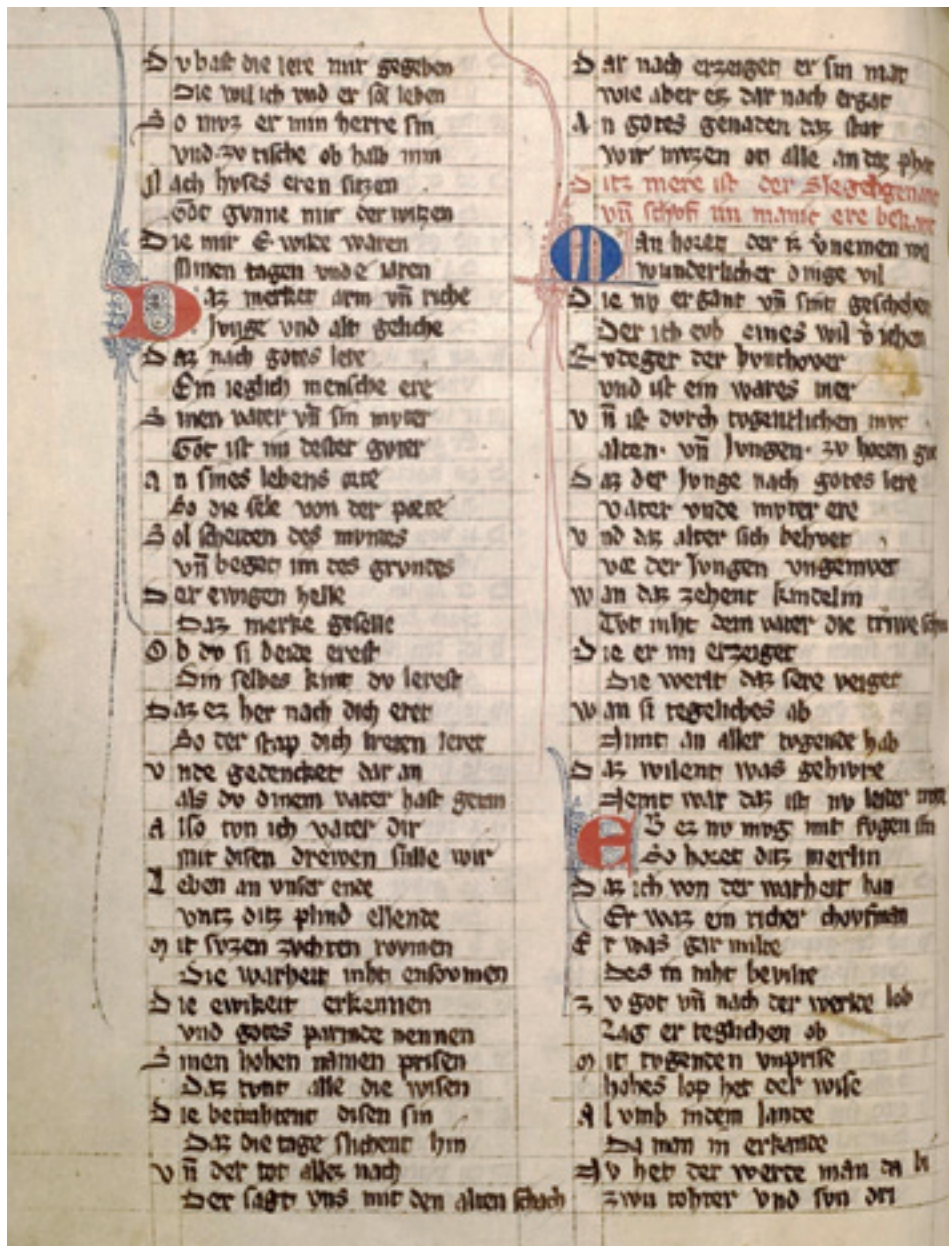 Du hast die lere mir gegeben
Die wil ich vnd er sol leben
So mvz er min herre sin
vnd zv tische ob halb min
Nach hvses eren sitzen
Got gvnne mir der witzen
Die mir E wilde waren
Minen tagen vnde iaren
Daz merket arm vn̄ riche
Jvnge vnd alt geliche
Daz nach gotes lere
Ein ieglich mensche ere
Sinen vater vn̄ sin mvter
Got ist im dester gvter
An sines lebens orte
So die sele von der porte
Sol scheiden des mvndes
vn̄ beget im des grvndes
Der ewigen helle
Daz merke geselle
Ob dv si beide erest
Din selbes kint dv lerest
Daz ez her nach dich eret
So der stap dich treten leret
vnde gedencket dar an
als dv dinem vater hast getan
Also tvn ich vater dir
Mit disen drewen sulle wir
Leben an vnser ende
vntz ditz plind ellende
Mit svzen zvhten rovmen
Die warheit niht ensovmen
Die ewikeit erkennen
vnd gotes parmde nennen
Sinen hohen namen prisen
Daz tvnt alle die wisen
Die betrahtent disen sin
Daz die tage slichent hin
vn̄ der tot allez nach
Der sagt vns mit den alten schach
Dar nach erzeiget er sin mat
wie aber ez dar nach ergat
An gotes genaden daz stat
wir mvzen an alle an daz
Ditz mere ist der Slegel
vn̄ schvf im manic ere
Man horet der iz v̾nemen wil
wunderlicher dinge vil
Die nv ergant vn̄ sint geschehen
Der ich evh eines wil v̾iehen
Rvdeger der hvnthover
vnd ist ein wares mer
vn̄ ist dvrch tvgentlichen mvt
alten· vn̄ Jvngen· zv horen gvt
Daz der Jvnge nach gotes lere
vater vnde mvter ere
vnd daz alter sich behvet
vor der Jvngen vngemvet
wan daz zehent kindelin
Tvt niht dem vater die triwe
Die er im erzeiget
Die werlt daz sere veiget
wan si tegeliches ab
Nimt an aller tvgende hab
Daz wilent was gehivre
Nemt war daz ist nv leider
Ob ez nv mvg mit fvgen sin
So horet ditz merlin
Daz ich von der warheit han
Er waz ein richer chovfman
Er was gar milte
Des in niht bevilte
zv got vn̄ nach der werlde lob
Lag er teglichen ob
Mit tvgenden vnprise
hohes lop het der wise
Al vmb indem lande
Da man in erkande
Nv het der werde man da bi
zwu tohter vnd svn dri